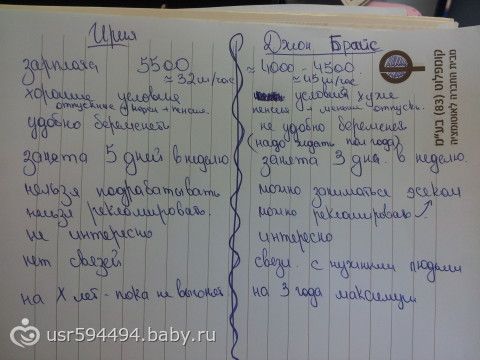 Ирия
зарплата 5500
≈32ш/час
хорошие условия
отпускные + + пенсия.
удобно беременеть
занята 5 дней в неделю
нельзя подрабатывать
нельзя рекламировать.
не интересно
нет связей
на X лет - пока не выгонят
Джон Брайс
≈ 4000 - 4500
≈45ш/час
условия хуже
пенсия + меньше отпускн.
не удобно беременеть
(надо ждать пол года)
занята 3 дня в неделю.
можно заниматься эсеком
можно рекламировать
интересно
связи с нужными людьми
на 3 года максимум
usr594494.baby.ru